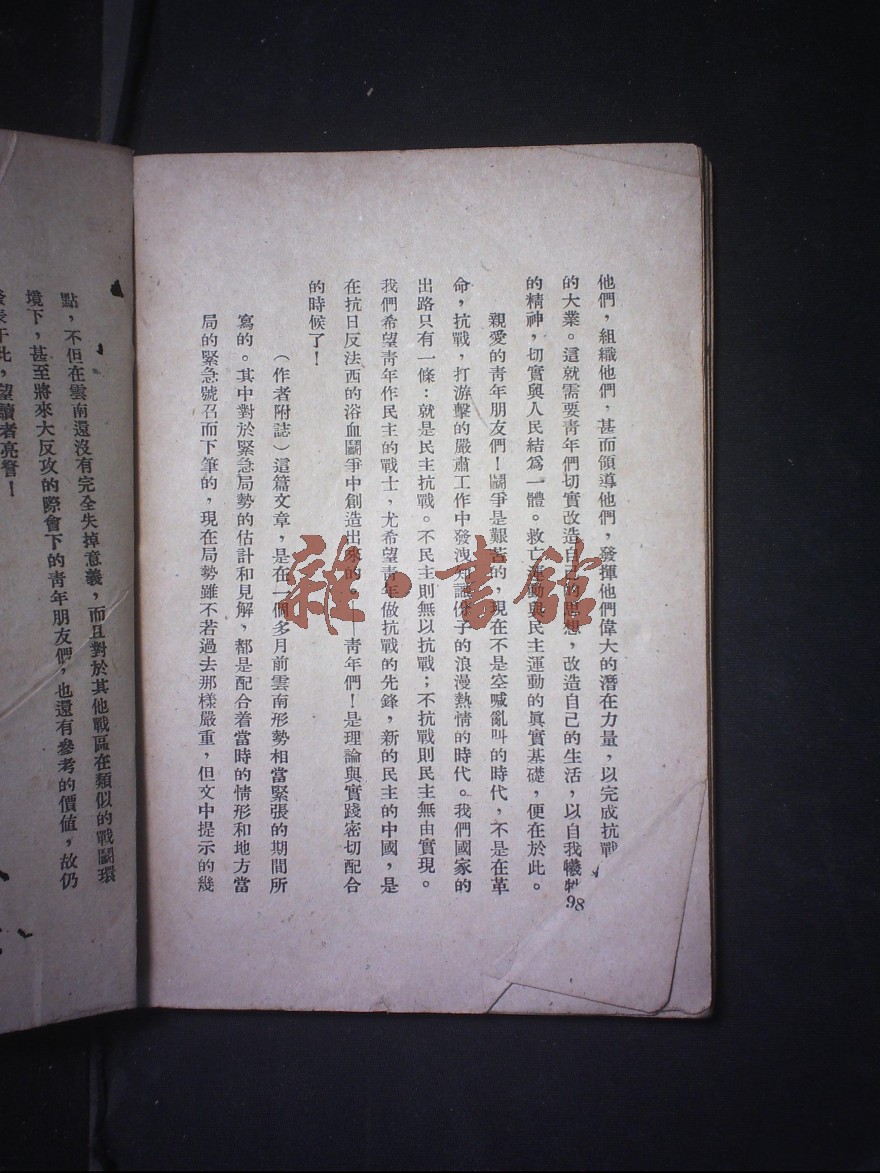 他們，組織他們，甚而領導他們，發揮他們偉大的潛在力量，以完成抗戰
的大業。這就需要靑年們切實改造自己的思想，改造自己的生活，以自我犧牲
的精神，切實與人民結爲一體。救亡運動與民主運動的眞實基礎，便在於此。
親愛的靑年朋友們！鬭爭是艱苦的，現在不是空喊亂叫的時代，不是在革
命，抗戰，打游擊的嚴肅工作中發洩知識份子的浪漫熱情的時代。我們國家的
出路只有一條：就是民主抗戰。不民主則無以抗戰；不抗戰則民主無由實現。
我們希望靑年作民主的戰士，尤希望靑年做抗戰的先鋒，新的民主的中國，是
在抗日反法西的浴血鬭爭中創造出來的。——靑年們！是理論與實踐密切配合
的時候了！
（作者附誌）這篇文章，是在一個多月前雲南形勢相當緊張的期間所
寫的。其中對於緊急局勢的估計和見解，都是配合着當時的情形和地方當
局的緊急號召而下筆的，現在局勢雖不若過去那樣嚴重，但文中提示的幾
98
點，不但在雲南還沒有完全失掉意義，而且對於其他戰區在類似的戰鬭環
境下，甚至將來大反攻的際會下的靑年朋友們，也還有參考的價値，故仍
於此，望讀者亮詧！
雜·書館